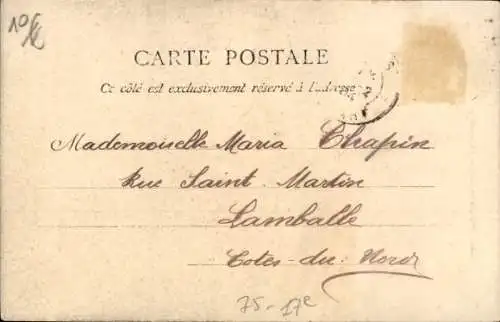 10€
CARTE POSTALE
Ce côté est exclusivement réservé à l'adresse
Mademoiselle Maria Chapin
Rue Saint Martin
Lamballe
Cotes-du-Nord
75-17e